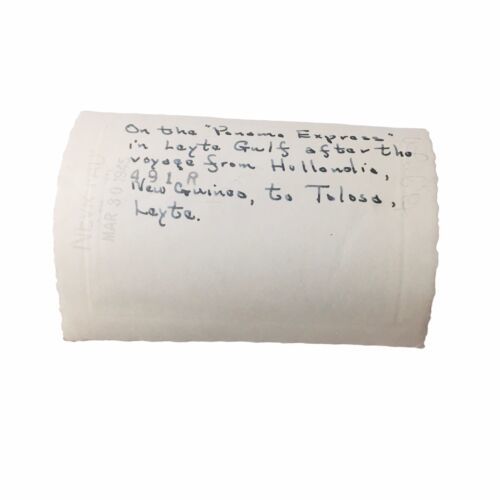 On the "Panama Express"
in Leyte Gulf after the
voyage from Hollandia,
491 R
New Guinea, to Tolosa,
Leyte.
MAR 30 194